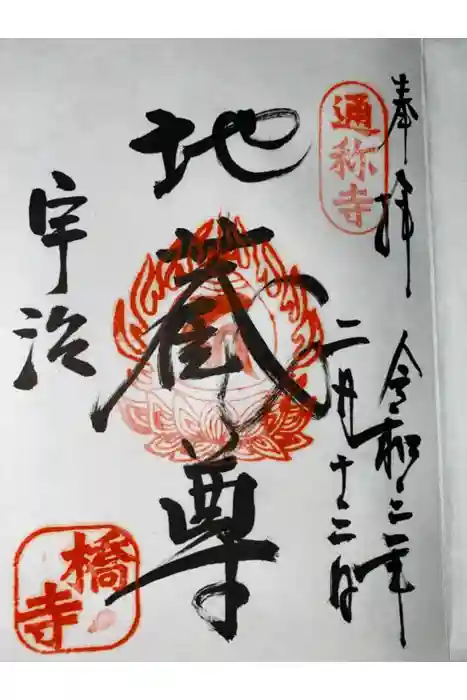 奉拝
通称寺
令和三年
二月十二日
地蔵尊
宇治
橋寺